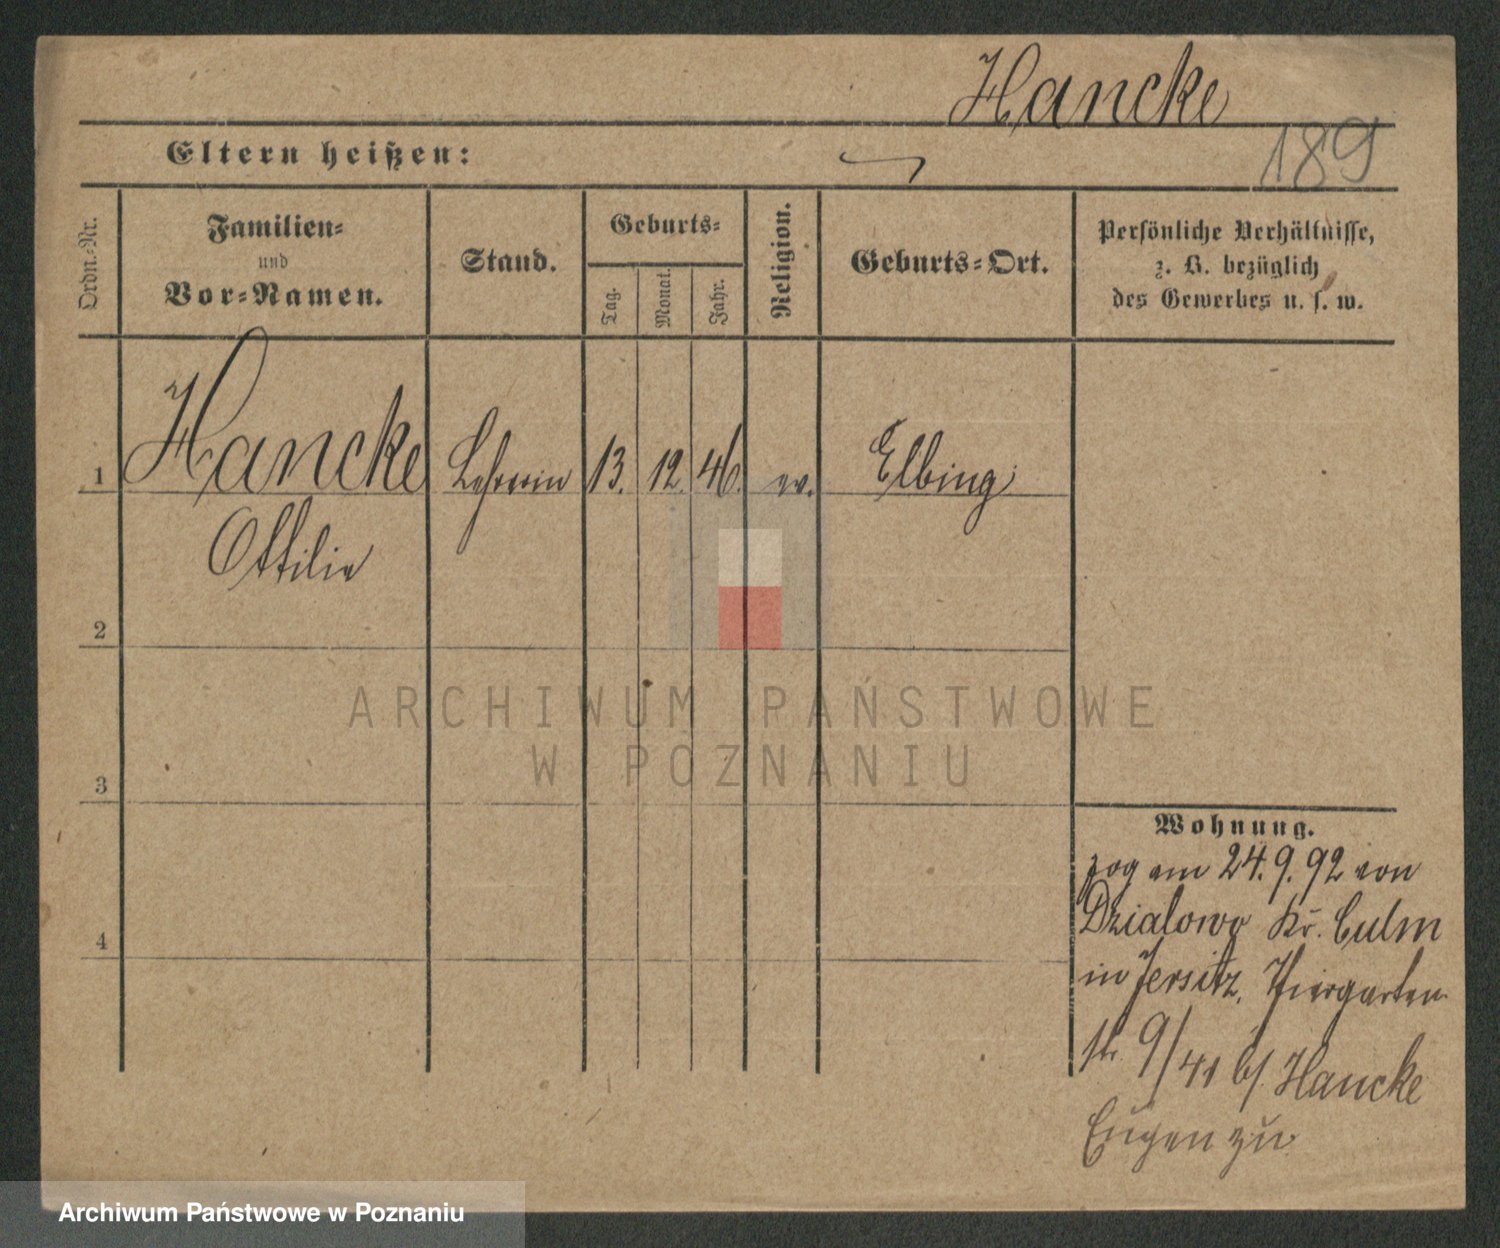 Hancke
189
Eltern heißen:
Ordn.-Nr.
Familien-
und
Vor-Namen.
Stand.
Geburts-
Tag.
Monat.
Jahr.
Religion.
Geburts-Ort.
Persönliche Verhältnisse,
z. B. bezüglich
des Gewerbes u. s. w.
1
Hancke
Lehrerin
13.
12.
46.
ev.
Elbing
Ottilie
2
3
4
ARCHIWUM PAŃSTWOWE
W POZNANIU
Wohnung.
zog am 24.9.92 von
Dzialowo Kr. Culm
in Jersitz, Thiergarten
str. 9/41 b/ Hancke
Eugen zu
Archiwum Państwowe w Poznaniu